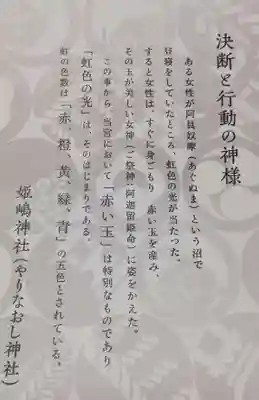 決断と行動の神様
ある女性が阿具奴摩(あぐぬま)という沼で
昼寝をしていたところ、虹色の光が当たった。
すると女性は、すぐに身ごもり 赤い玉を産み、
その玉が美しい女神(ご祭神・阿迦留姫命)に姿をかえた。
この事から 当宮において「赤い玉」は特別なものであり
「虹色の光」は、そのはじまりである。
虹の色数は「赤、橙、黄、緑、青」の五色とされている。
姫嶋神社(やりなおし神社)